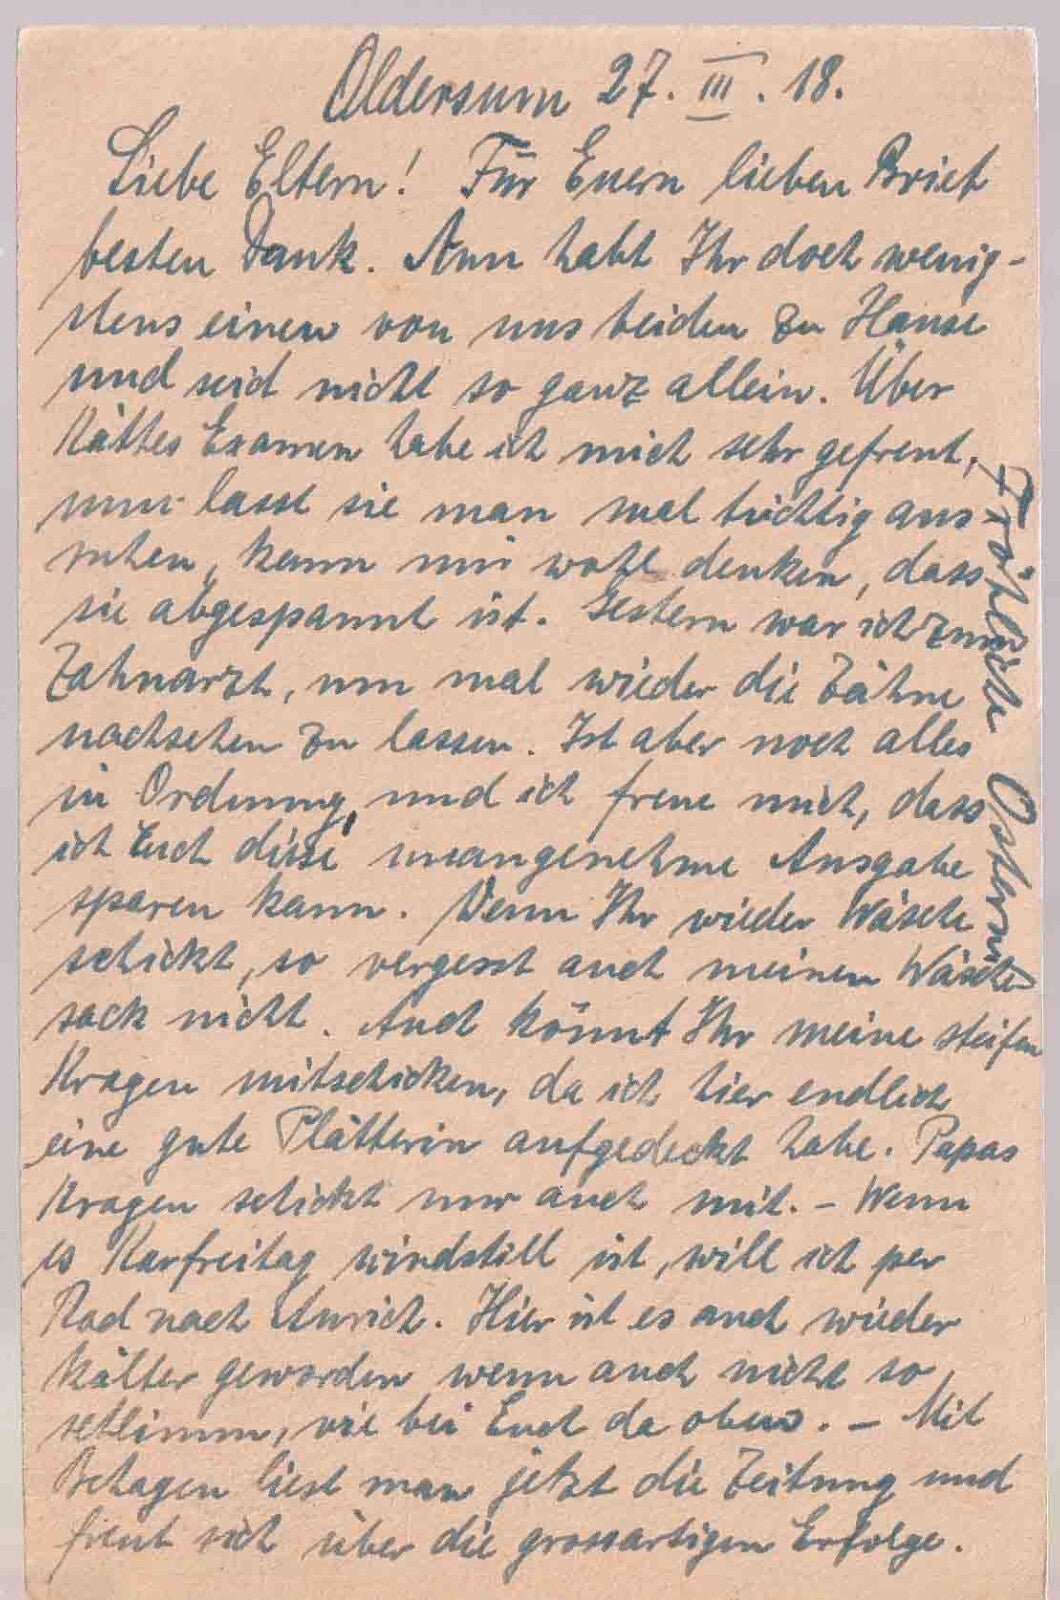 Oldersum 27. III. 18.
Liebe Eltern! Für Euern lieben Brief
besten Dank. Nun habt Ihr doch wenig-
stens einen von uns beiden zu Hause
und seid nicht so ganz allein. Über
Käthes Examen habe ich mich sehr gefreut,
nun lasst sie man mal tüchtig aus-
ruhen, kann mir wohl denken, dass
sie abgespannt ist. Gestern war ich zum
Zahnarzt, um mal wieder die Zähne
nachsehen zu lassen. Ist aber noch alles
in Ordnung, und ich freue mich, dass
ich Euch diese unangenehme Ausgabe
sparen kann. Wenn Ihr wieder Wäsche
schickt, so vergesst auch meinen Wäsche-
sack nicht. Auch könnt Ihr meine steifen
Kragen mitschicken, da ich hier endlich
eine gute Plätterin aufgedeckt habe. Papas
Kragen schickt nur auch mit. – Wenn
es Karfreitag windstill ist, will ich per
Rad nach Aurich. Hier ist es auch wieder
kälter geworden wenn auch nicht so
schlimm, wie bei Euch da oben. – Mit
Behagen liest man jetzt die Zeitung und
freut sich über die grossartigen Erfolge.
Fröhliche Ostern!